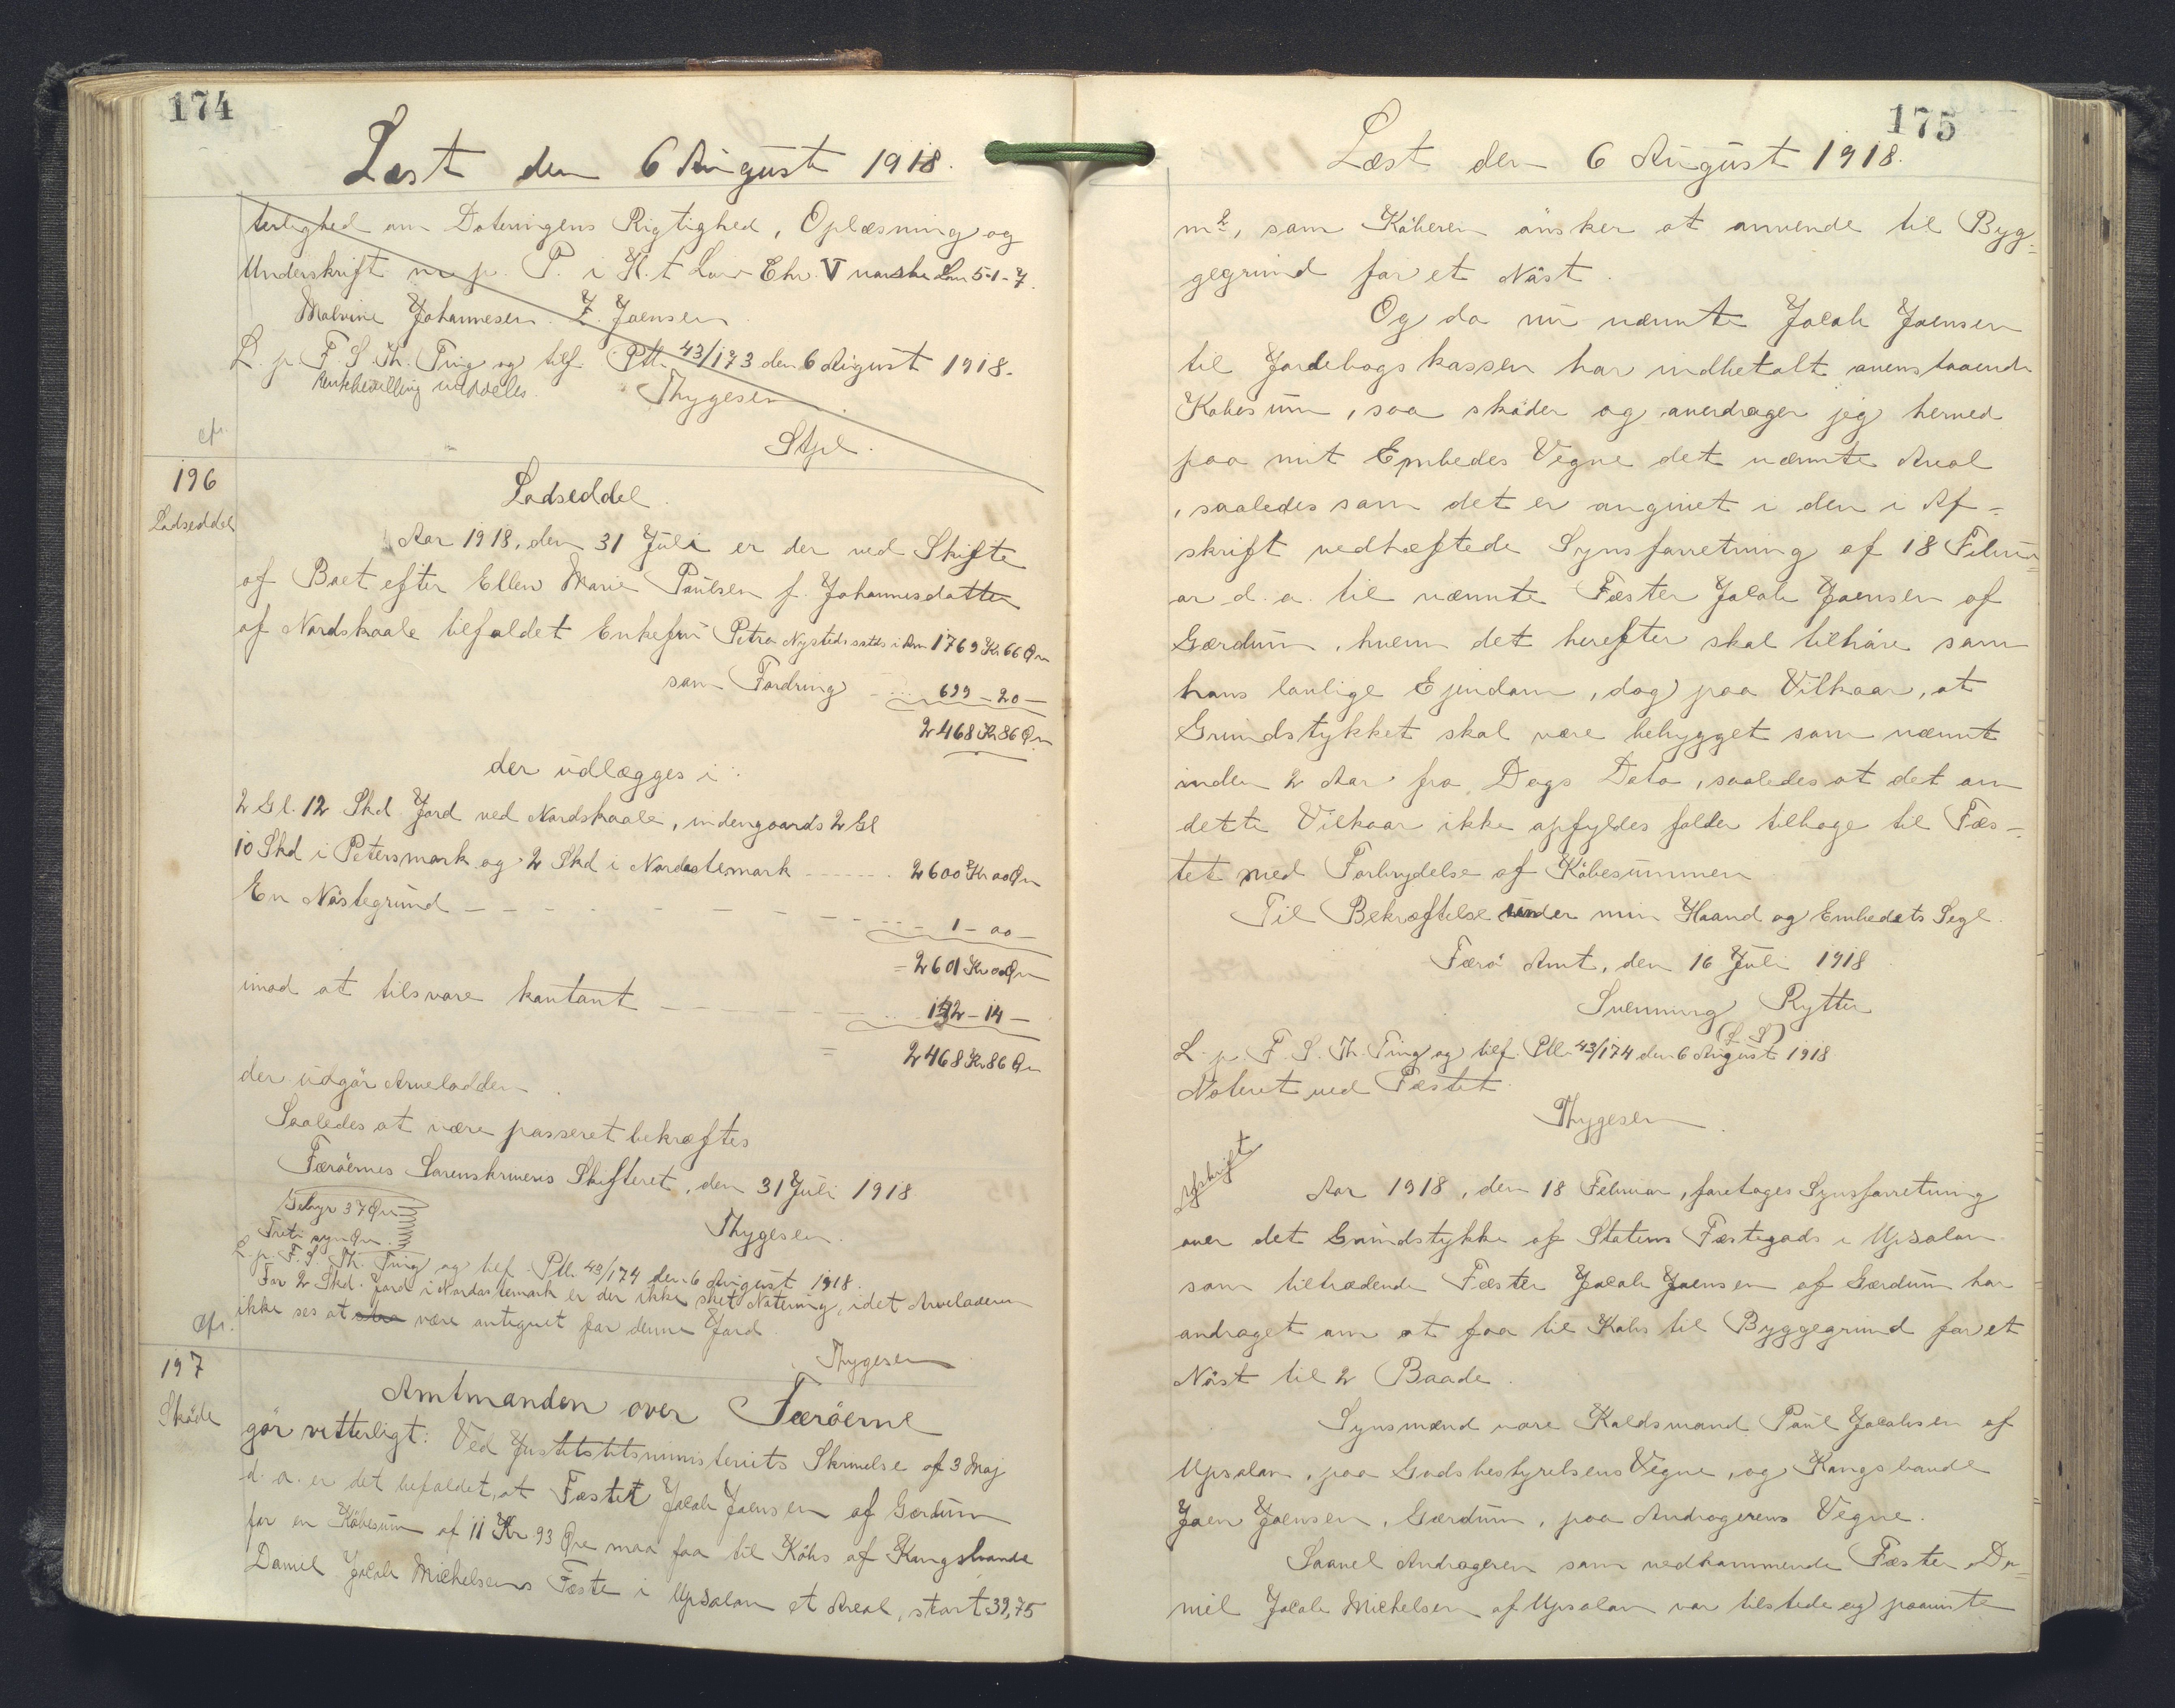 174
Læst den 6 August 1918.
terlighed om Dateringens Rigtighed, Oplæsning og
Underskrift m. p. P. i H. t Lov Chr. V norske Lov 5-1-7.
Malvine Johannesen. Z. Joensen
L. p. F. S. Th. Ting og tilf. Ptb. 43/173 den 6 August 1918.
uddeles. Thygesen
Stpl.
cfr.
196
Lodseddel
Lodseddel.
Aar 1918, den 31 Juli er der ved Skifte
af Boet efter Ellen Marie Poulsen f. Johannesdatter
af Nordskaale tilfaldet Enkefru Petra Nysteds som Arv 1769 Kr 66 Øre
som Fordring 699 - 20 -
2468 Kr 86 Øre
der udlægges i:
2 Gl. 12 Skd Jord ved Nordskaale, indengaards 2 Gl
10 Skd i Petersmark og 2 Skd i Nordastemark 2600 Kr 00 Øre
En Nöstegrund 1 - 00 -
= 2601 Kr 00 Øre
imod at tilsvare kontant 132 - 14 -
= 2468 Kr 86 Øre
der udgör Arvelodden.
Saaledes at være passeret bekræftes
Færöernes Sorenskriveris Skifteret, den 31 Juli 1918
Gebyr 37 Øre
Thygesen.
Treti syv Øre.
L. p. F. S. Th. Ting og tilf. Ptb. 43/174 den 6 August 1918.
For 2 Skd. Jord i Nordastemark er der ikke sket Notering, idet Arveladeren
ikke ses at være antegnet for denne Jord.
Thygesen
cfr.
197
Sköde
Amtmanden over Færöerne
gör vitterligt: Ved Justitstitsministeriets Skrivelse af 3 Maj
d. a. er det befaldet, at Fæstet Jacob Joensen af Gærdum
for en Köbesum af 11 Kr 93 Øre maa faa til Köbs af Kongsbonde
Daniel Jacob Michelsens Fæste i Upsalon et Areal, stort 39,75
175
Læst den 6 August 1918.
m2, som Köberen önsker at anvende til Byg-
gegrund for et Nöst.
Og da nu nævnte Jacob Joensen
til Jordebogskassen har indbetalt ovenstaaende
Köbesum, saa sköder og overdrager jeg herved
paa mit Embedes Vegne det nævnte Areal
, saaledes som det er angivet i den i Af-
skrift vedhæftede Synsforretning af 18 Febru-
ar d. a. til nævnte Fæster Jacob Joensen af
Gærdum, hvem det herefter skal tilhöre som
hans lovlige Ejendom, dog paa Vilkaar, at
Grundstykket skal være bebygget som nævnt
inden 2 Aar fra Dags Dato, saaledes at det om
dette Vilkaar ikke opfyldes falder tilbage til Fæs-
tet med Forbrydelse af Köbesummen
Til Bekræftelse under min Haand og Embedets Segl.
Færö Amt, den 16 Juli 1918.
Svenning Rytter
(L. S)
L. p. F. S. Th. Ting og tilf. Ptb. 43/174 den 6 August 1918
Noteret ved Fæstet.
Thygesen.
Afskrift
Aar 1918, den 18 Februar, foretoges Synsforretning
over det Grundstykke af Statens Fæstegods i Upsalon
som tiltrædende Fæster Jacob Joensen af Gærdum har
andraget om at faa til Köbs til Byggegrund for et
Nöst til 2 Baade.
Synsmænd vare Kaldsmand Paul Jacobsen af
Upsalon, paa Godsbestyrelsens Vegne, og Kongsbonde
Joen Joensen, Gærdum, paa Andragerens Vegne.
Saavel Andrageren som vedkommende Fæster Da-
niel Jacob Michelsen af Upsalon var tilstede og paaviste